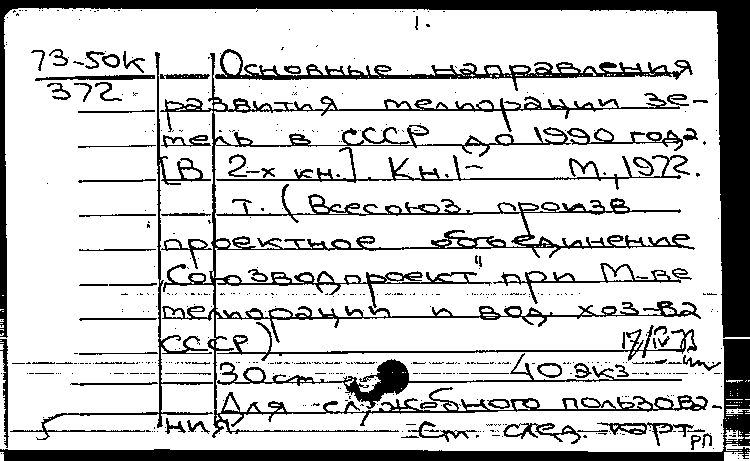 1.
73-50к
372
Основные направления
развития мелиорации зе-
мель в СССР до 1990 года.
[В 2-х кн.]. Кн.1- М., 1972.
т. (Всесоюз. произв.
проектное объединение
„Союзводпроект" при М-ве
мелиорации и вод. хоз-ва
СССР)
17/IV 73
30см. 40 экз.
Для служебного пользова-
ния.
См. след. карт.
РП